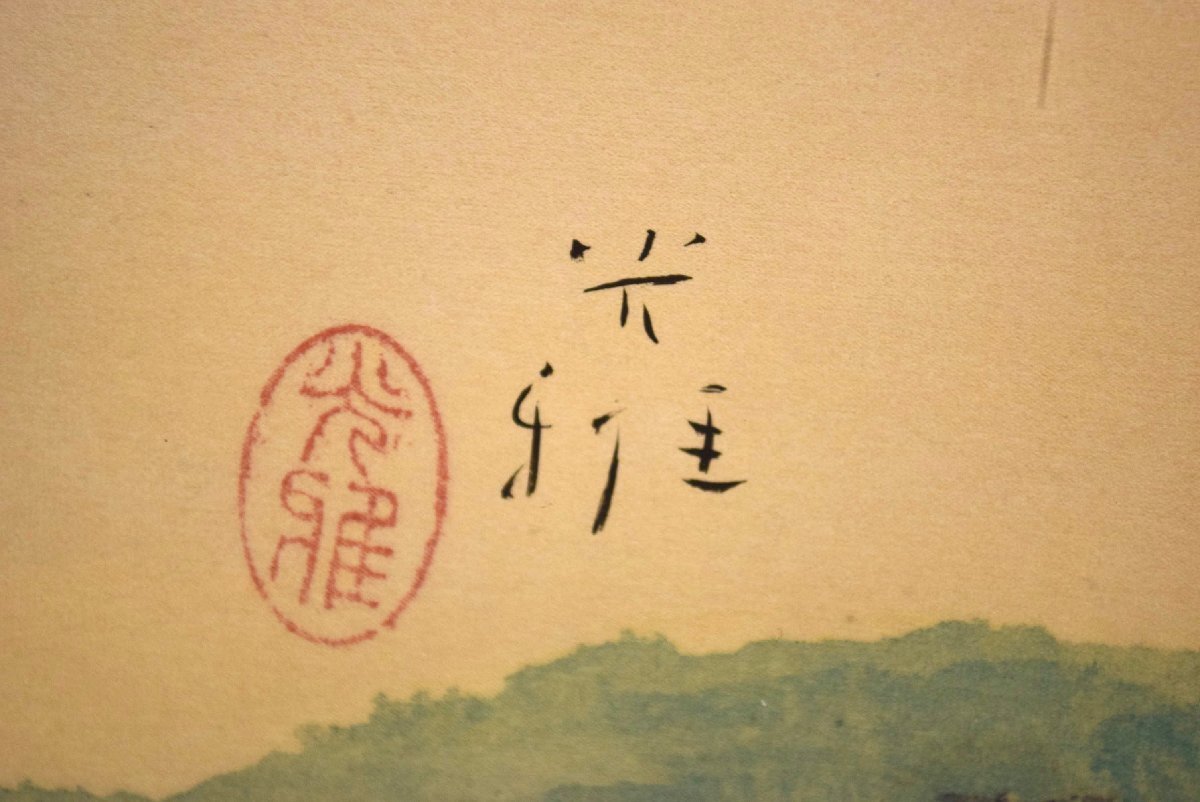 光雅
光雅